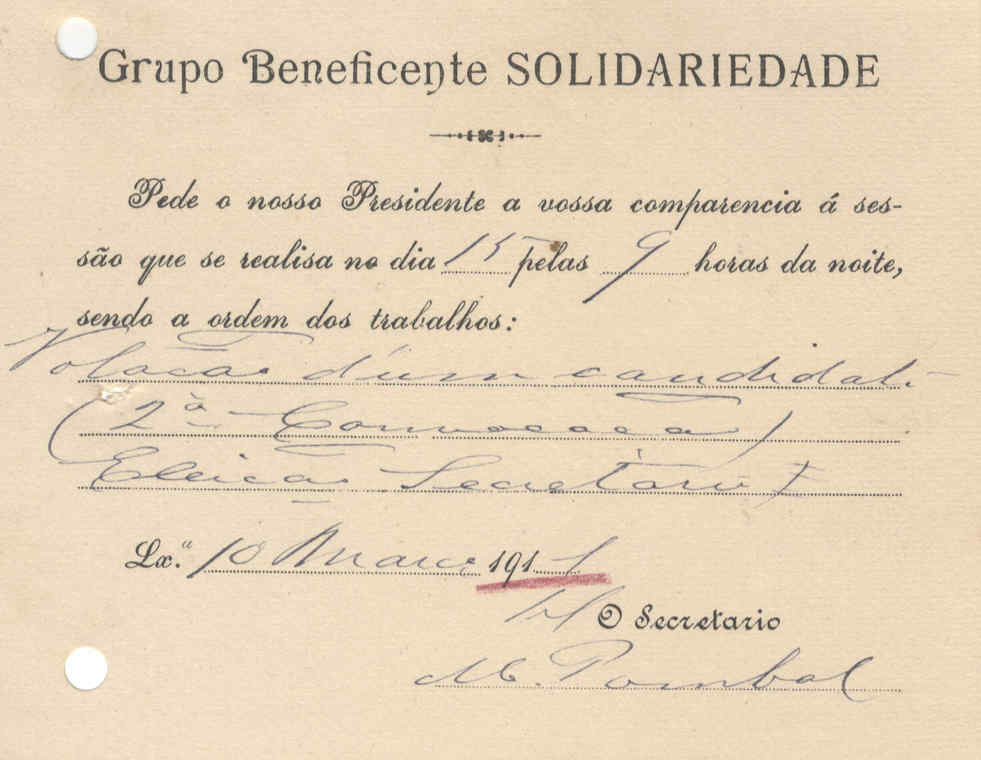 Grupo Beneficente SOLIDARIEDADE
Pede o nosso Presidente a vossa comparencia á ses-
são que se realisa no dia 15 pelas 9 horas da noite,
sendo a ordem dos trabalhos:
Votação d'um candidato
(2ª Convocação)
Eleição Secretario
Lx.ª 10 Março 191
O Secretario
M. Pombal